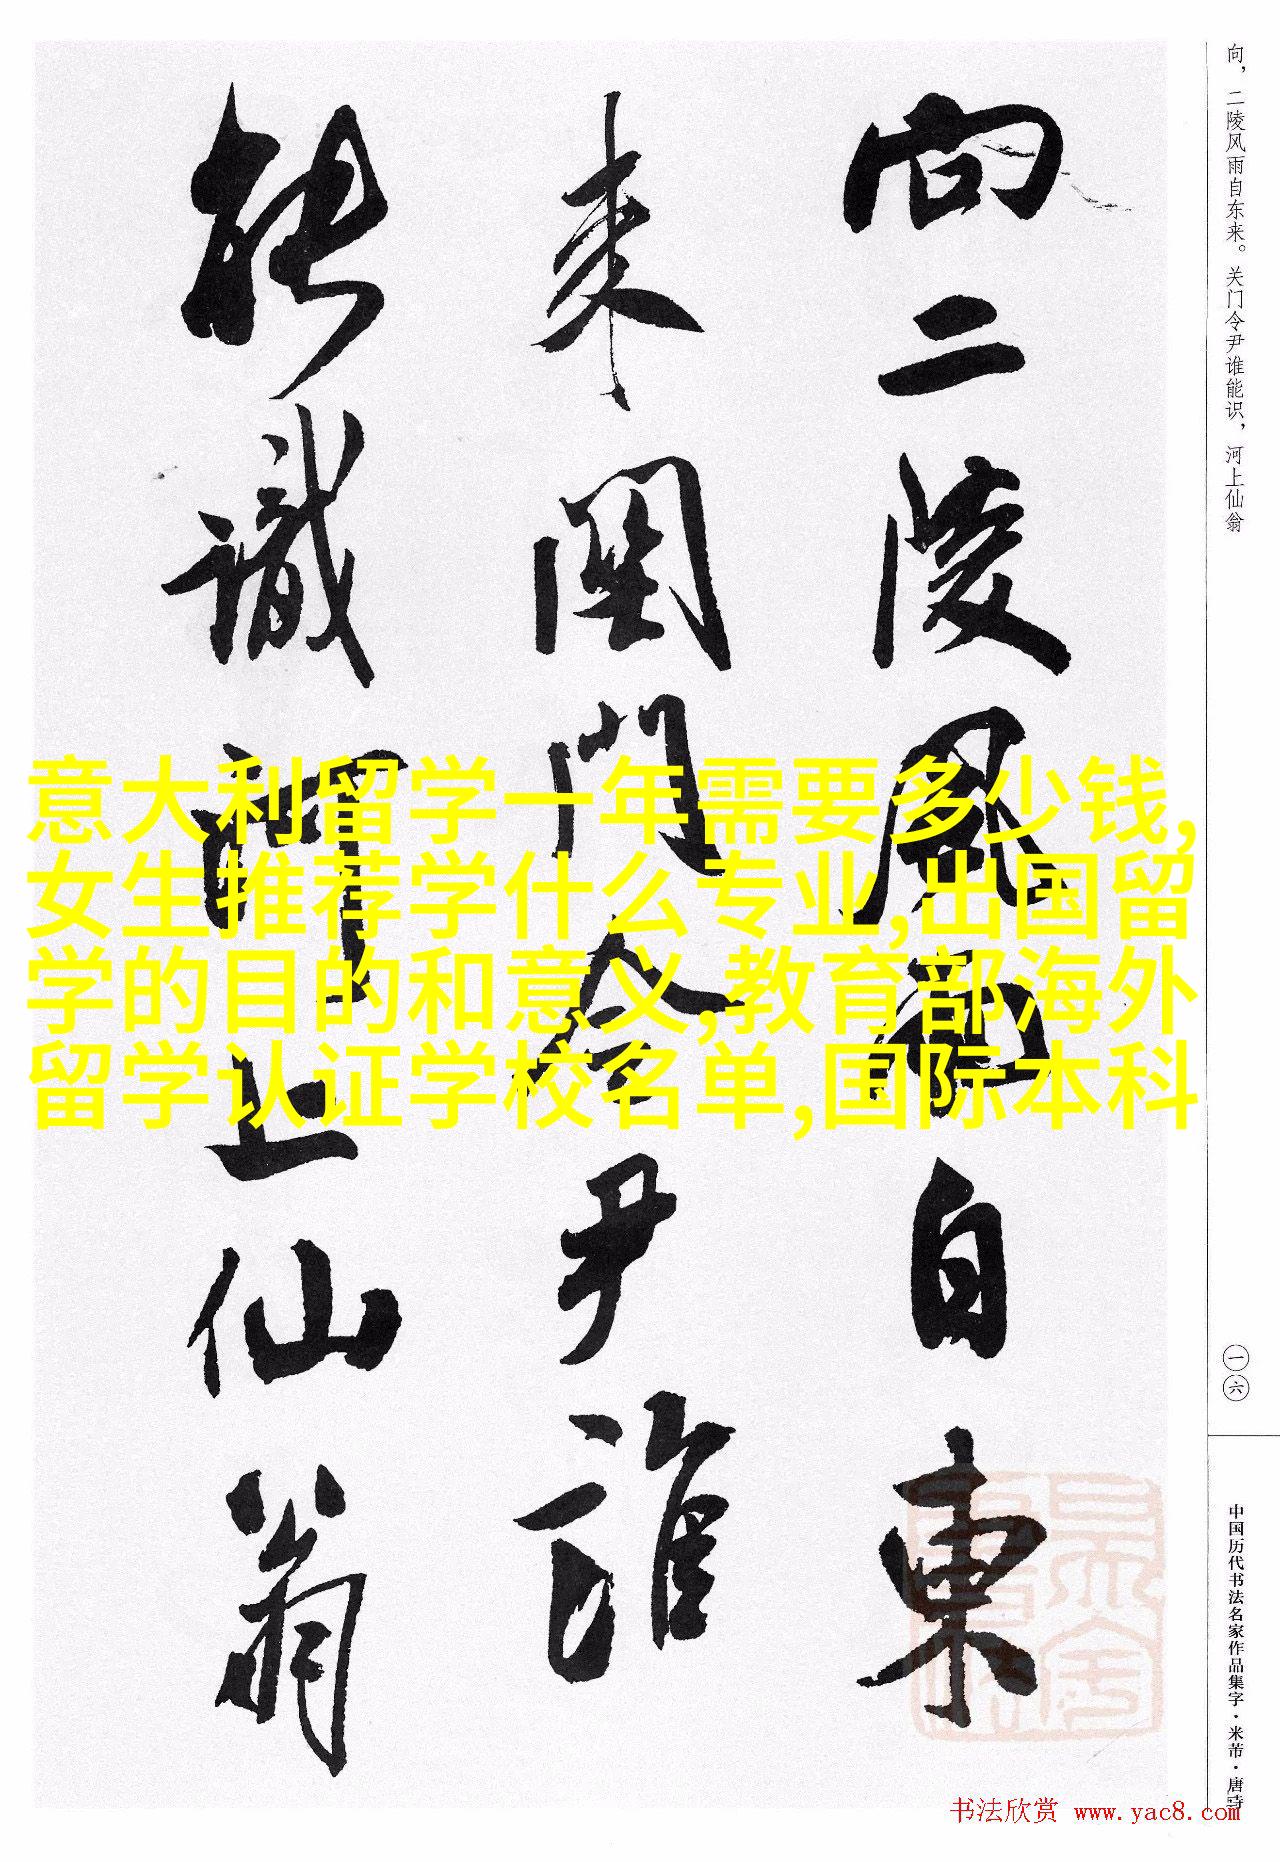 向二陵风雨自东
来关门令尹谁
能识河上仙翁
向，二陵风雨自东来。关门令尹谁能识，河上仙翁
一六
中国历代书法名家作品集字·米芾·唐诗
意大利留学一年需要多少钱,
女生推荐学什么专业,出国留
学的目的和意义,教育部海外
留学认证学校名单,国际本科
书法欣赏 www.yac8.com